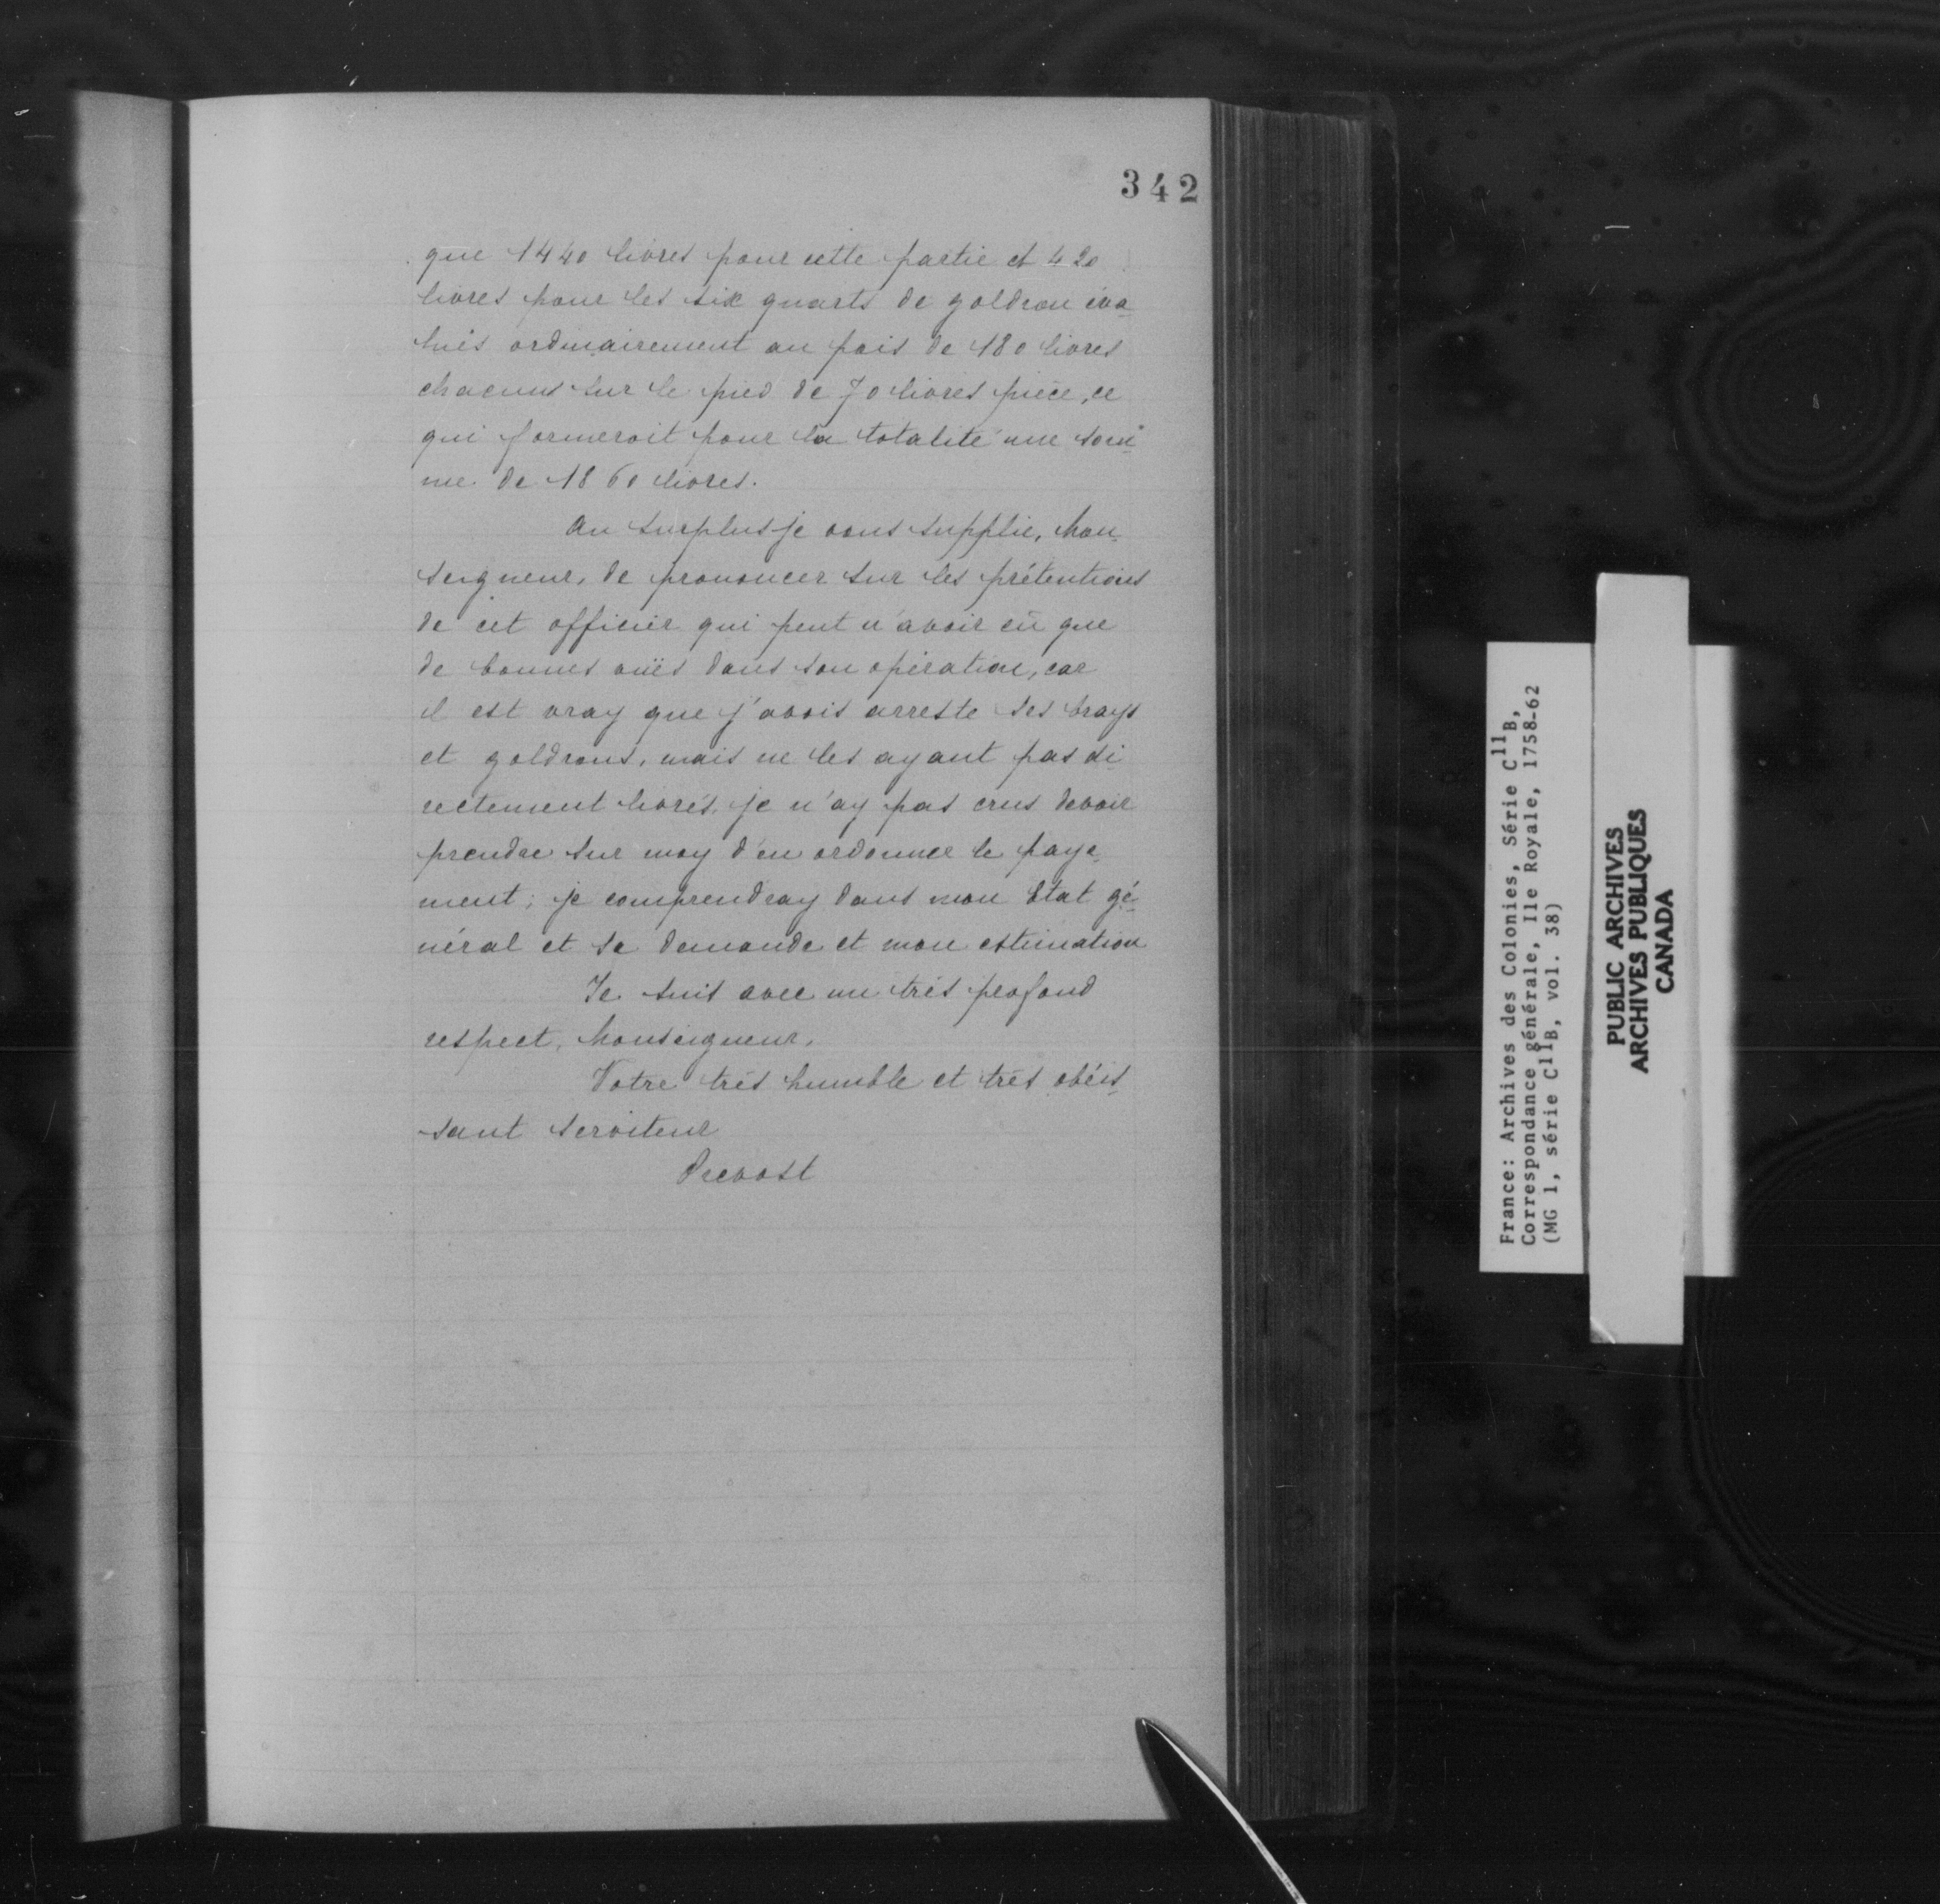 342
que 1440 livres pour cette partie et 420
livres pour les six quarts de goldron éva-
lués ordinairement au pois de 180 livres
chacuns sur le pied de 70 livres pièce, ce
qui formeroit pour la totalité une som-
me de 1860 livres.
Au surplus je vous supplie, Mon-
seigneur, de prononcer sur les prétentions
de cet officier qui peut n'avoir eû que
de bonnes vuës dans son opération, car
il est vray que j'avois arreste ses brays
et goldrons, mais ne les ayant pas di-
rectement livrés, je n'ay pas crus devoir
prendre sur moy d'en ordonner le paye-
ment; je comprendray dans mon Etat gé-
néral et sa demande et mon estimation
Je suis avec un très profond
respect, Monseigneur,
Votre très humble et très obéis-
sant serviteur
Prevost
France: Archives des Colonies, Série C11B,
Correspondance générale, Ile Royale, 1758-62
(MG 1, série C11B, vol. 38)
PUBLIC ARCHIVES
ARCHIVES PUBLIQUES
CANADA